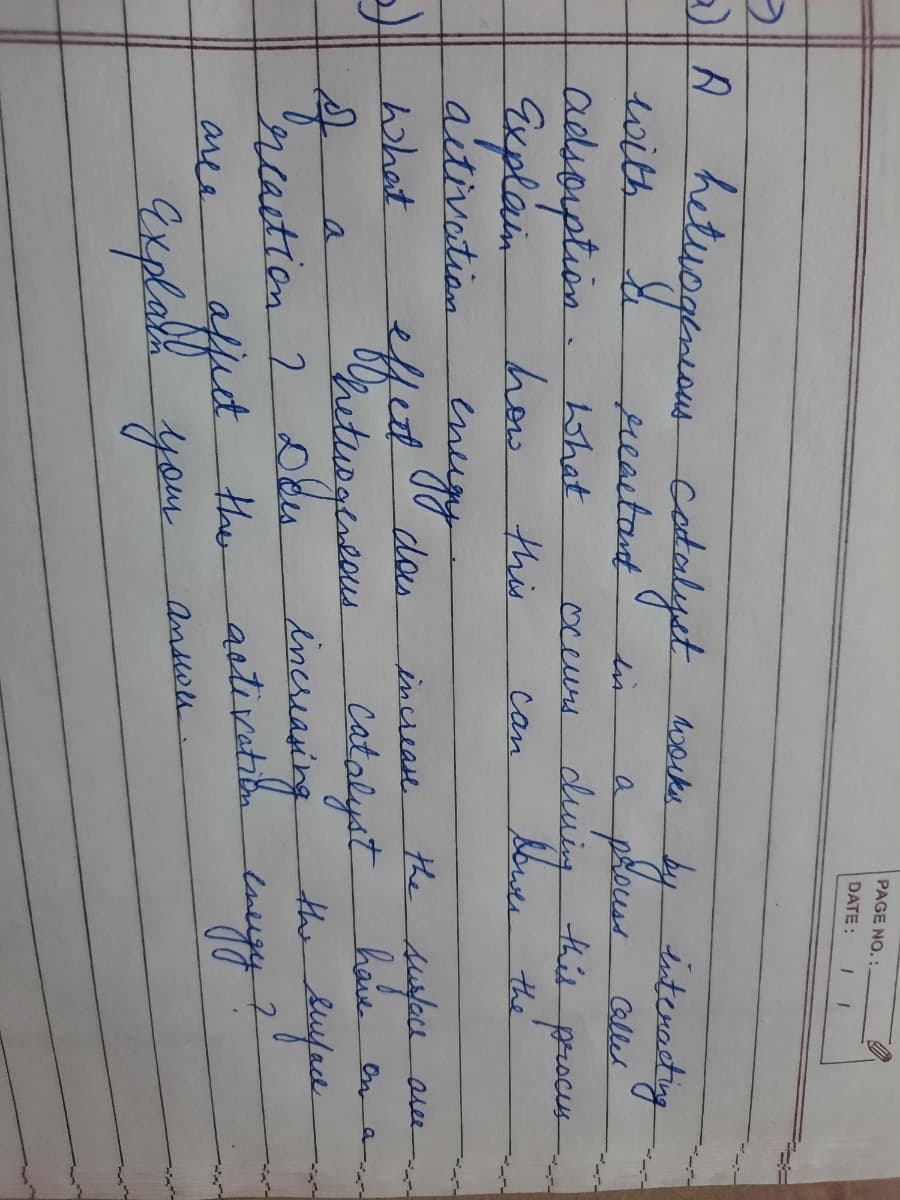 PAGE NO.:
DATE: / /
a) A heterogeneous catalyst works by interacting
with a reactant in a process called
adsorption. What occurs during this process
Explain how this can lower the
activation energy.
What effect does increase the surface area
of a heterogeneous catalyst have on a
reaction? Does increasing the surface
area affect the activation energy?
Explain your answer.